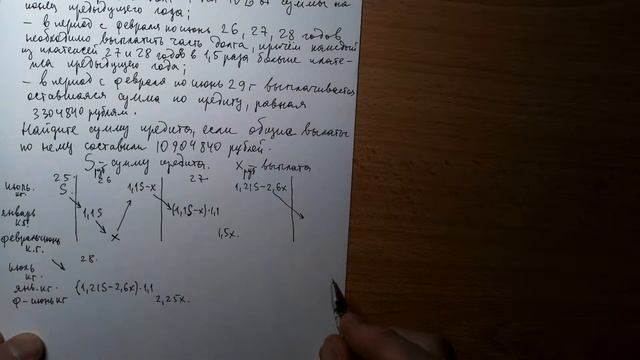 июлем предыдущего года;
– в период с февраля по июнь 26, 27, 28 годов
необходимо выплатить часть долга, причём каждый
из платежей 27 и 28 годов в 1,5 раза больше плате-
жа предыдущего года;
– в период с февраля по июнь 29 г выплачивается
оставшаяся сумма по кредиту, равная
3304840 рублям.
Найдите сумму кредита, если общие выплаты
по нему составили 10904840 рублей.
S руб – сумму кредита. x руб выплата
25 26 27
июль кг. S 1,1S-x 1,21S-2,6x
январь к.г. 1,1S (1,1S-x)·1,1
февраль-июнь к.г. x 1,5x.
28.
июль кг.
янв. кг. (1,21S-2,6x)·1,1
ф-июнь кг 2,25x.